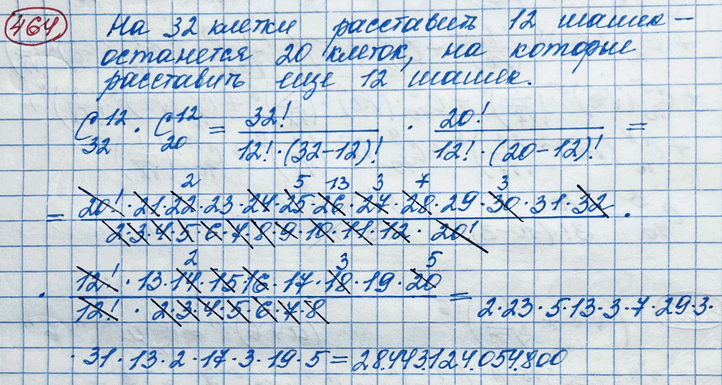 464 На 32 клетки расставить 12 шашек –
останется 20 клеток, на которые
расставить еще 12 шашек.
C₃₂¹² · C₂₀¹² = 32! / (12! · (32–12)!) · 20! / (12! · (20–12)!) =
2 5 13 3 7 3
= 20! · 21 · 22 · 23 · 24 · 25 · 26 · 27 · 28 · 29 · 30 · 31 · 32 ·
2·3·4·5·6·7·8·9·10·11·12 · 20!
2 3 5
· 12! · 13 · 14 · 15 · 16 · 17 · 18 · 19 · 20
12! · 2·3·4·5·6·7·8 = 2·23·5·13·3·7·29·3·
·31·13·2·17·3·19·5 = 28.443.124.054.800